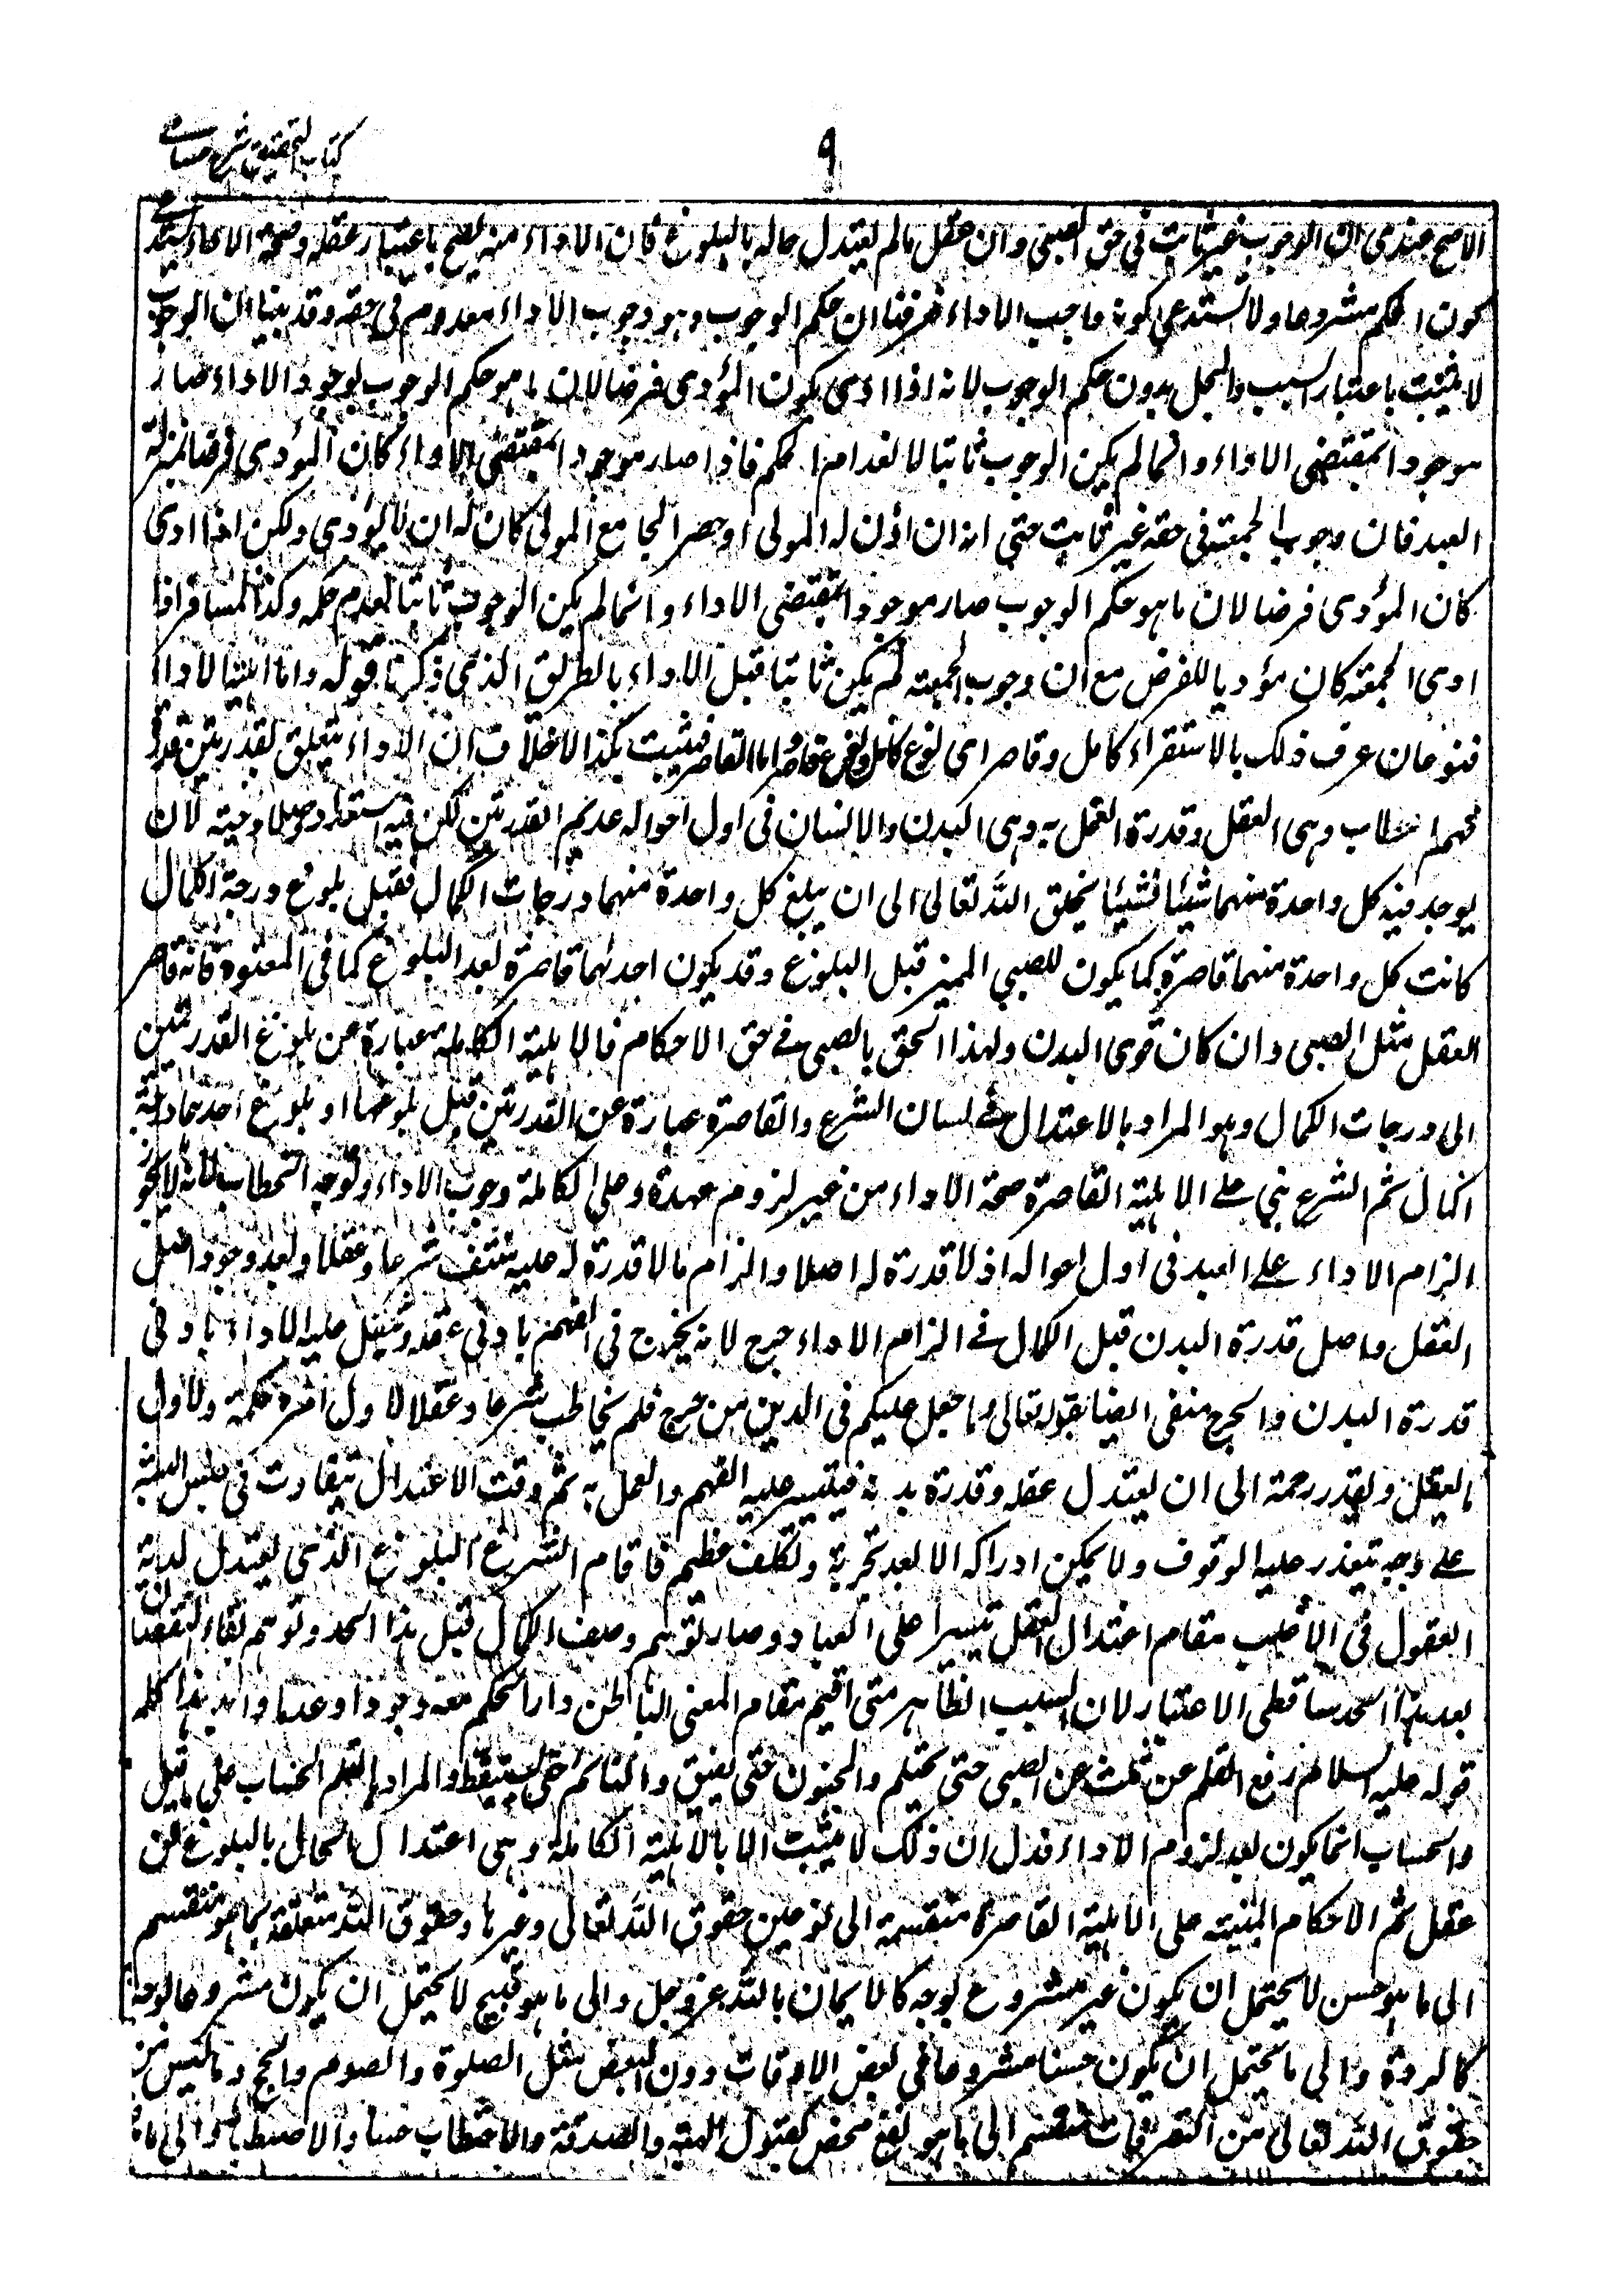 كتاب التحقيق شرح حسامي
٩
الاصح عندى ان الوجوب غير ثابت فى حق الصبى وان عقل مالم يعتدل حاله بالبلوغ فان الاداء منه يصح باعتبار عقله وصحة الاداء يستدعى
كون الحكم مشروعا ولا تستدعى كونه واجب الاداء فعرفنا ان حكم الوجوب وهو وجوب الاداء معدوم فى حقه وقد بينا ان الوجوب
لا يثبت باعتبار السبب والمحل بدون حكم الوجوب لانه اذا ادى يكون المؤدى فرضا لان ما هو حكم الوجوب بوجود الاداء صار
موجودا بمقتضى الاداء وانما لم يكن الوجوب ثابتا لانعدام الحكم فاذا صار موجودا بمقتضى الاداء كان المؤدى فرضا بمنزلة
العبد فان وجوب الجمعة فى حقه غير ثابت حتى انه ان اذن له المولى او حضر الجامع مع المولى كان له ان لا يؤدى ولكن اذا ادى
كان المؤدى فرضا لان ما هو حكم الوجوب صار موجودا بمقتضى الاداء وانما لم يكن الوجوب ثابتا لعدم حكمه وكذا المسافر اذا
ادى الجمعة كان مؤديا للفرض مع ان وجوب الجمعة لم يكن ثابتا قبل الاداء بالطريق الذى ذكرنا قوله واما اهلية الاداء
فنوعان عرف ذلك بالاستقراء كامل وقاصر اى نوع كامل ونوع قاصر اما القاصر فيثبت بكذا لاخلاف ان الاداء يتعلق بقدرتين قدرة
فهم الخطاب وهى العقل وقدرة العمل به وهى البدن والانسان فى اول احواله عديم القدرتين لكن فيه استعداد وصلاحية لان
يوجد فيه كل واحدة منهما شيئا فشيئا بخلق الله تعالى الى ان يبلغ كل واحدة منهما درجات الكمال فقبل بلوغ درجة الكمال
كانت كل واحدة منهما قاصرة كما يكون للصبى المميز قبل البلوغ وقد يكون احدٰهما قاصرة بعد البلوغ كما فى المعتوه فانه قاصر
العقل مثل الصبى وان كان قوى البدن ولهذا الحق بالصبى فى حق الاحكام فالاهلية الكاملة عبارة عن بلوغ القدرتين
الى درجات الكمال وهو المراد بالاعتدال فى لسان الشرع والقاصرة عبارة عن القدرتين قبل بلوغهما او بلوغ احدٰهما درجة
الكمال ثم الشرع بنى على الاهلية القاصرة صحة الاداء من غير لزوم عهدة وعلى الكاملة وجوب الاداء وتوجه الخطاب لانه لا يجوز
الزام الاداء على العبد فى اول احواله اذ لا قدرة له اصلا والزام مالا قدرة له عليه منتف شرعا وعقلا وبعد وجود اصل
العقل واصل قدرة البدن قبل الكمال فى الزام الاداء حرج لانه يحرج فى الفهم بادنى عقله ويثقل عليه الاداء بادنى
قدرة البدن والحرج منفى ايضا بقوله تعالى وما جعل عليكم فى الدين من حرج فلم يخاطب شرعا وعقلا لاول امره حكمة ولاول
ما يعقل ويقدر رحمة الى ان يعتدل عقله وقدرة بدنه فيتيسر عليه الفهم والعمل به ثم وقت الاعتدال يتفاوت فى جنس البشر
على وجه يتعذر عليه الوقوف ولا يمكن ادراكه الا بعد تجربة وتكلف عظيم فاقام الشرع البلوغ الذى يعتدل لديه
العقول فى الاغلب مقام اعتدال العقل تيسيرا على العباد وصار توهم وصف الكمال قبل هذا الحد وتوهم بقاء النقصان
بعد هذا الحد ساقطى الاعتبار لان السبب الظاهر متى اقيم مقام المعنى الباطن دار الحكم معه وجودا وعدما وايد هذا كله
قوله عليه السلام رفع القلم عن ثلث عن الصبى حتى يحتلم والمجنون حتى يفيق والنائم حتى يستيقظ والمراد بالقلم الحساب على ما قيل
والحساب انما يكون بعد لزوم الاداء فدل ان ذلك لا يثبت الا بالاهلية الكاملة وهى اعتدال الحال بالبلوغ عن
عقل ثم الاحكام المبنية على الاهلية القاصرة منقسمة الى نوعين حقوق الله تعالى وغيرها وحقوق الله متعلقة بما هو منقسم
الى ما هو حسن لا يحتمل ان يكون غير مشروع بوجه كالايمان بالله عز وجل والى ما هو قبيح لا يحتمل ان يكون مشروعا بوجه
كالردة والى ما يحتمل ان يكون حسنا مشروعا فى بعض الاوقات دون البعض مثل الصلوة والصوم والحج وما ليس من
حقوق الله تعالى من التصرفات منقسم الى ما هو نفع محض كقبول الهبة والصدقة والاحتطاب والاصطياد والى ما